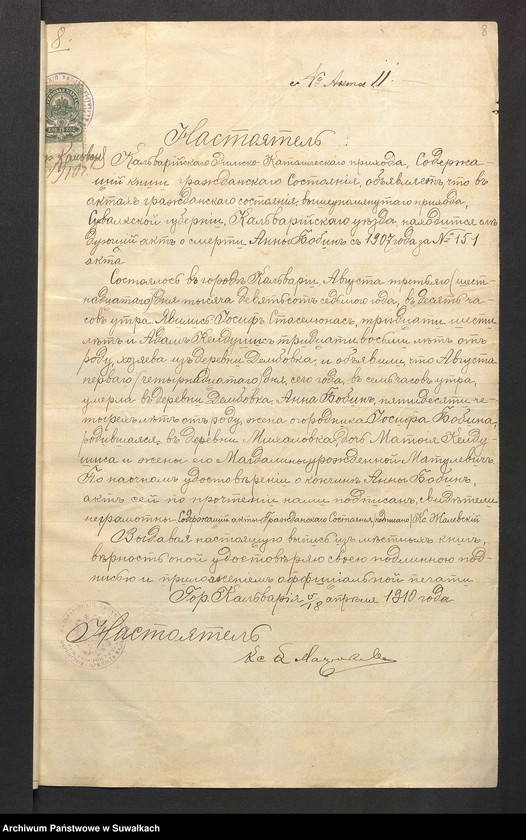 8.
8
к № Акта 11
Настоятель
Кальварійскаго Римско-Католическаго прихода, Содержа-
щій книги гражданскаго Состоянія, объявляетъ, что въ
актахъ гражданскаго состоянія вышеупомянутаго прихода,
Сувалкской губерніи, Кальварійскаго уѣзда, находится слѣ-
дующій актъ о смерти Анны Бобинъ съ 1907 года за № 151
акта
Состоялось въ городѣ Кальваріи, Августа третьяго (шест-
надцатаго) дня тысяча девятьсотъ седьмого года, въ десять ча-
совъ утра. Явились: Іосифъ Стаселюнасъ, тридцати шести
лѣтъ и Адамъ Келдушисъ тридцати восьми лѣтъ отъ
роду, хозяева изъ деревни Дембовка, и объявили, что Августа
перваго (четырнадцатаго) дня, сего года, въ семь часовъ утра,
умерла въ деревни Дембовка, Анна Бобинъ, пятидесяти че-
тырехъ лѣтъ отъ роду, жена огородника Іосифа Бобина,
родившаяся въ деревни Михаловка, дочь Матѳея Келду-
шиса и жены его Магдалины урожденной Матулевичъ.
По наочномъ удостовѣреніи о кончинѣ Анны Бобинъ,
актъ сей по прочтеніи нами подписанъ, свидѣтели
неграмотны. Содержащій акты Гражданскаго Состоянія (подписано) Кс.
Выдавая настоящую выпись изъ мѣстныхъ книгъ,
вѣрность оной удостовѣряю своею подлинною под-
писью и приложеніемъ оффиціальной печати.
Гор. Кальварія 5/18 апрѣля 1910 года
Настоятель
Кс
Archiwum Państwowe w Suwałkach